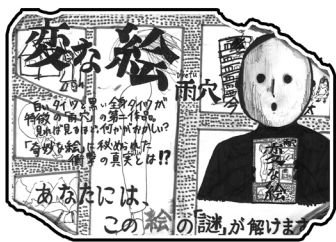 変な絵
雨穴
白いタイツと黒い全身タイツが
特徴の「雨穴」の第二作品。
見れば見るほど何かがおかしい?
「奇妙な絵」に秘められた
衝撃の真実とは!?
変な絵
あなたには、
この絵の「謎」が解けますか